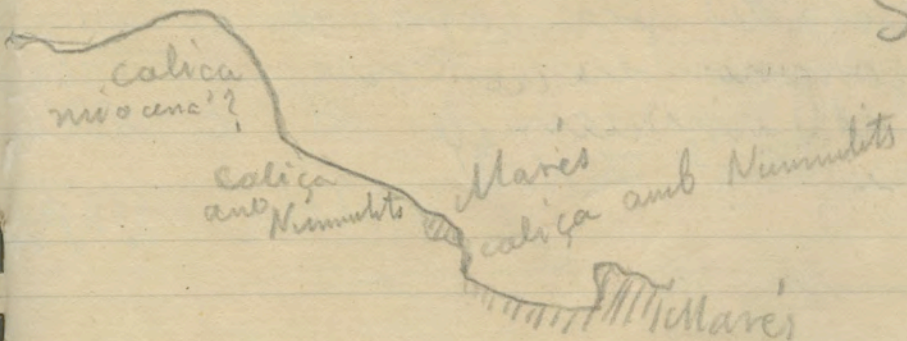 caliça
miocena?
caliça
amb
Nummulits
Marés
caliça amb Nummulits
Marés